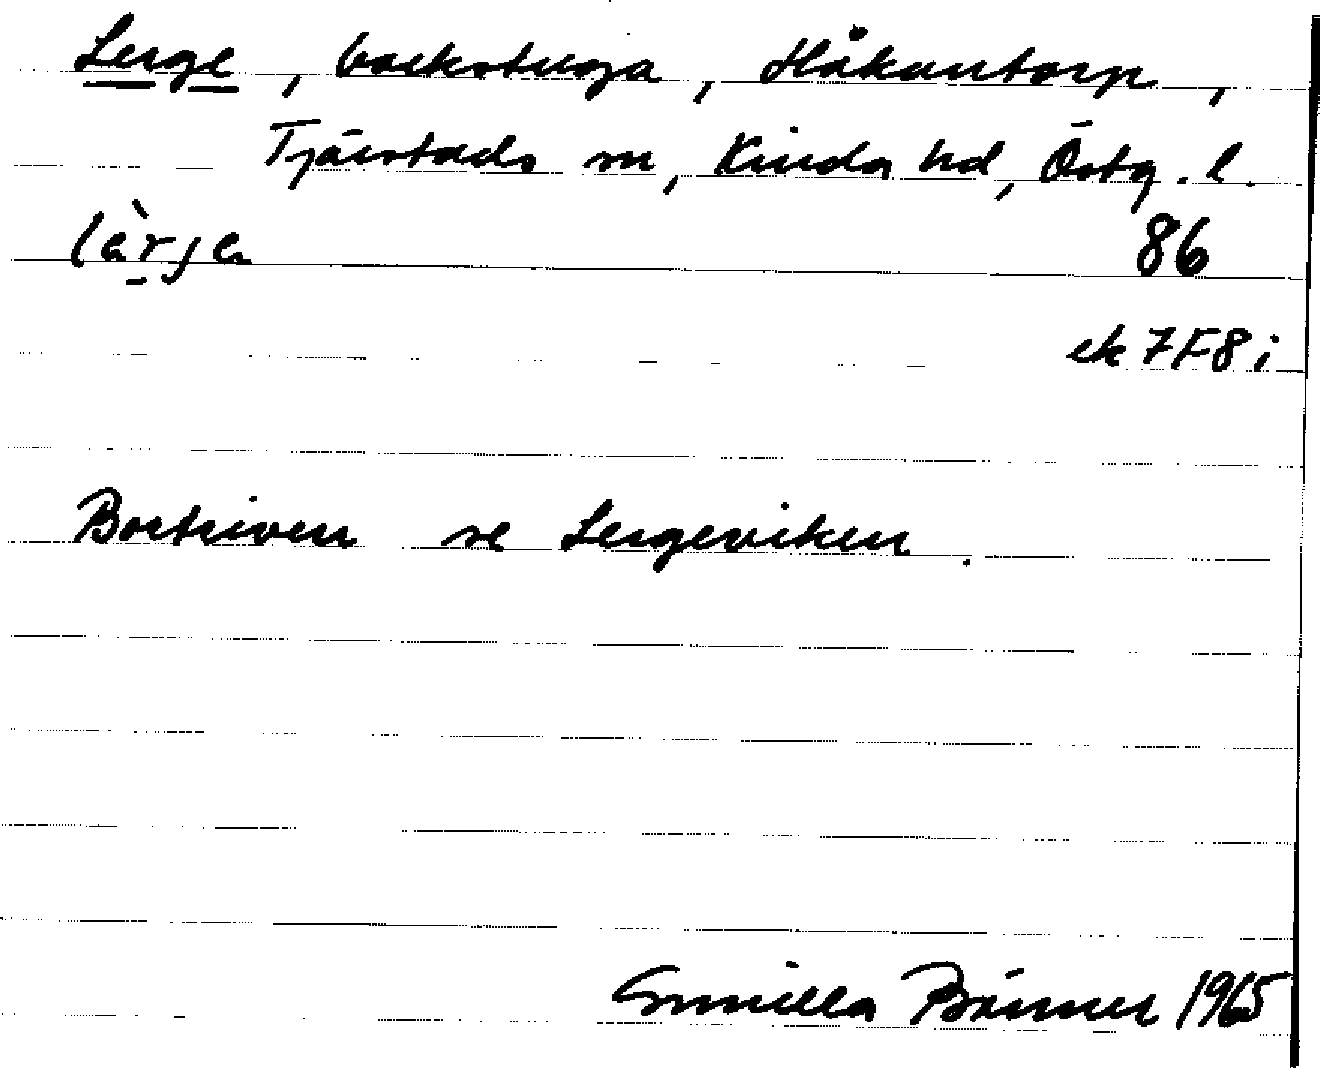 Lerge, backstuga, Håkantorp,
Tjärstads sn, Kinda hd, Östg. l.
lä̀rjɐ
86
ek 7F8i
Bortriven se Lergeviken.
Gunilla Bärmer 1965